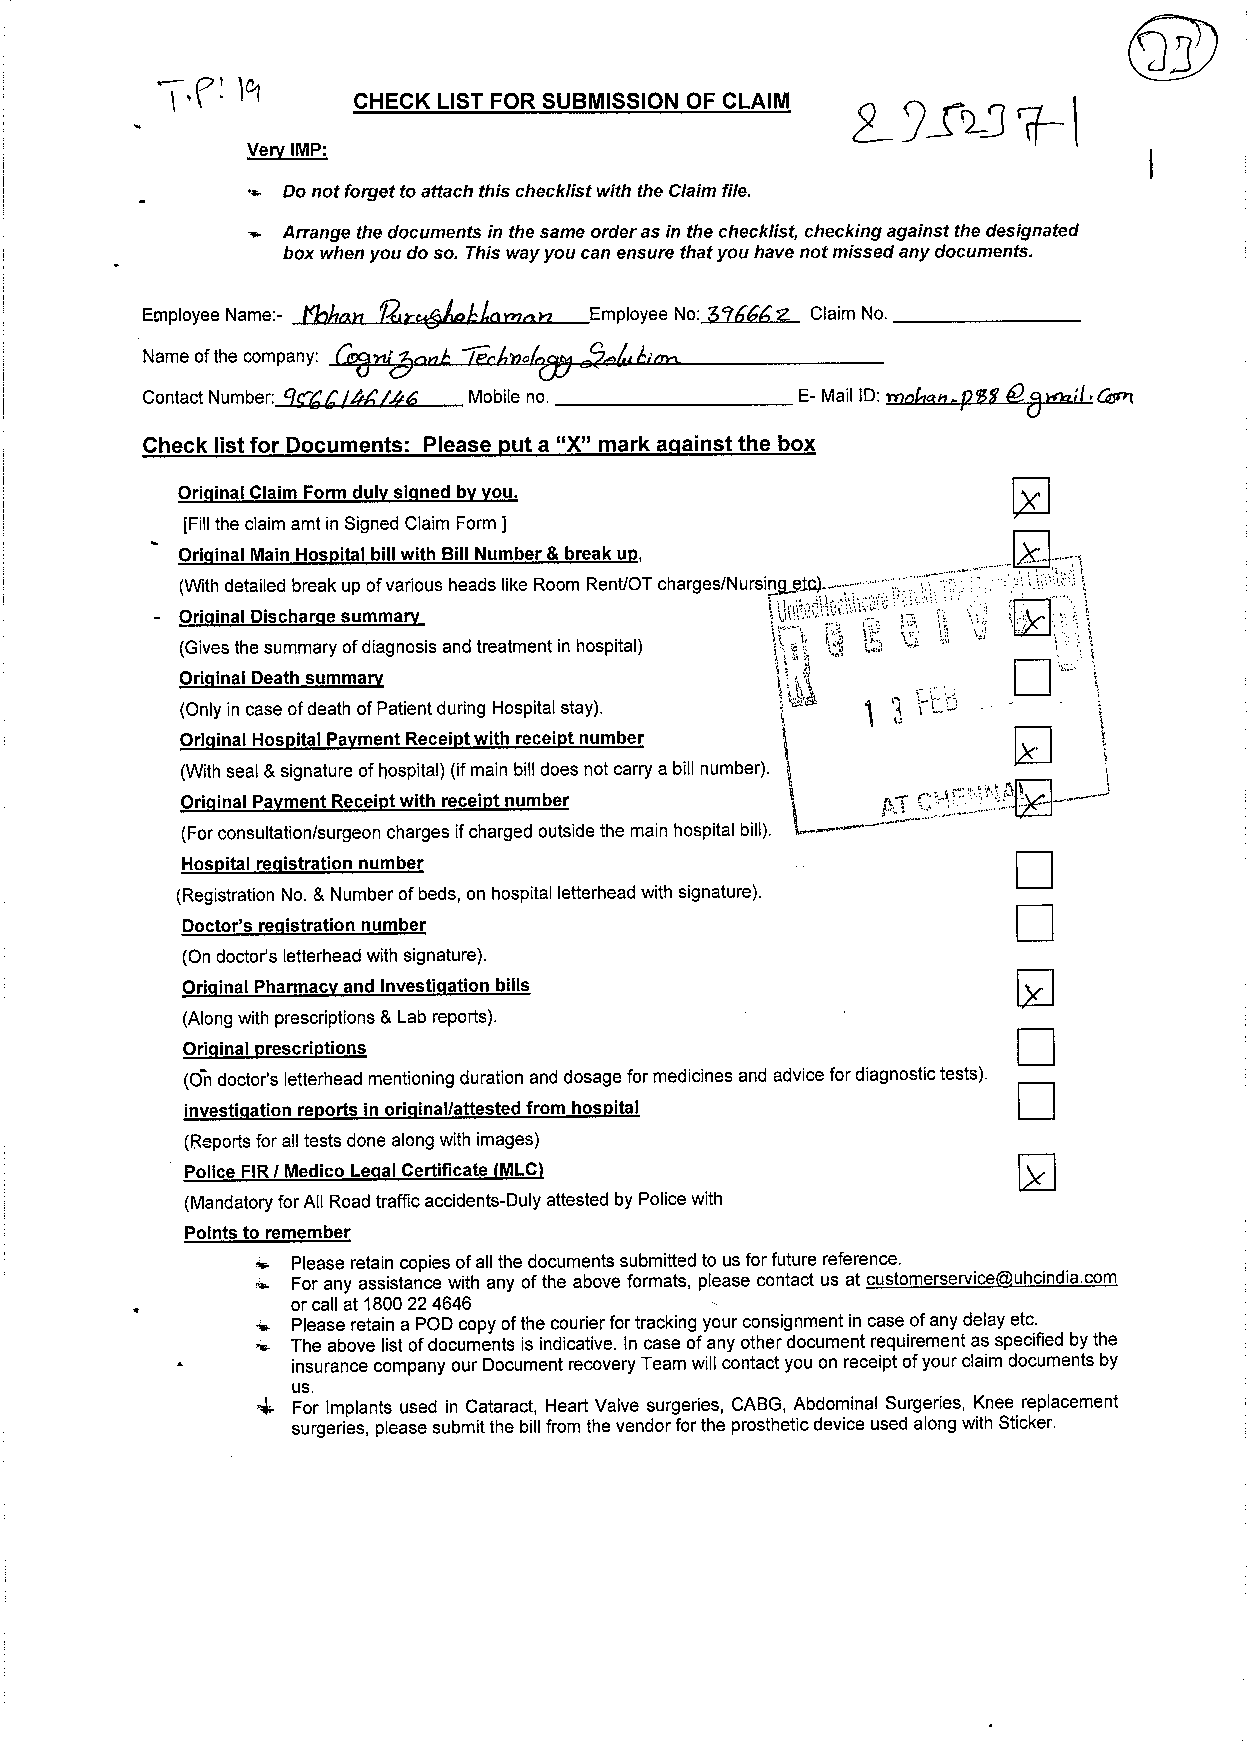 T.P: 19
CHECK LIST FOR SUBMISSION OF CLAIM
Very IMP:
Do not forget to attach this checklist with the Claim file.
Arrange the documents in the same order as in the checklist, checking against the designated
box when you do so. This way you can ensure that you have not missed any documents.
Employee Name:- Mohan Purushothaman Employee No: 396662 Claim No.
Name of the company: Cognizant Technology Solution
Contact Number: Mobile no. E- Mail ID: mohan.p88@gmail.com
Check list for Documents: Please put a "X" mark against the box
Original Claim Form duly signed by you. X
[Fill the claim amt in Signed Claim Form ]
Original Main Hospital bill with Bill Number & break up, X
(With detailed break up of various heads like Room Rent/OT charges/Nursing etc).
Original Discharge summary X
(Gives the summary of diagnosis and treatment in hospital)
RECEIVED
Original Death summary
(Only in case of death of Patient during Hospital stay).
13 FEB
Original Hospital Payment Receipt with receipt number X
(With seal & signature of hospital) (if main bill does not carry a bill number).
Original Payment Receipt with receipt number X
AT CHENNAI
(For consultation/surgeon charges if charged outside the main hospital bill).
Hospital registration number
(Registration No. & Number of beds, on hospital letterhead with signature).
Doctor's registration number
(On doctor's letterhead with signature).
Original Pharmacy and Investigation bills X
(Along with prescriptions & Lab reports).
Original prescriptions
(On doctor's letterhead mentioning duration and dosage for medicines and advice for diagnostic tests).
investigation reports in original/attested from hospital
(Reports for all tests done along with images)
Police FIR / Medico Legal Certificate (MLC) X
(Mandatory for All Road traffic accidents-Duly attested by Police with
Points to remember
Please retain copies of all the documents submitted to us for future reference.
For any assistance with any of the above formats, please contact us at customerservice@uhcindia.com
or call at 1800 22 4646
Please retain a POD copy of the courier for tracking your consignment in case of any delay etc.
The above list of documents is indicative. In case of any other document requirement as specified by the
insurance company our Document recovery Team will contact you on receipt of your claim documents by
us.
For Implants used in Cataract, Heart Valve surgeries, CABG, Abdominal Surgeries, Knee replacement
surgeries, please submit the bill from the vendor for the prosthetic device used along with Sticker.